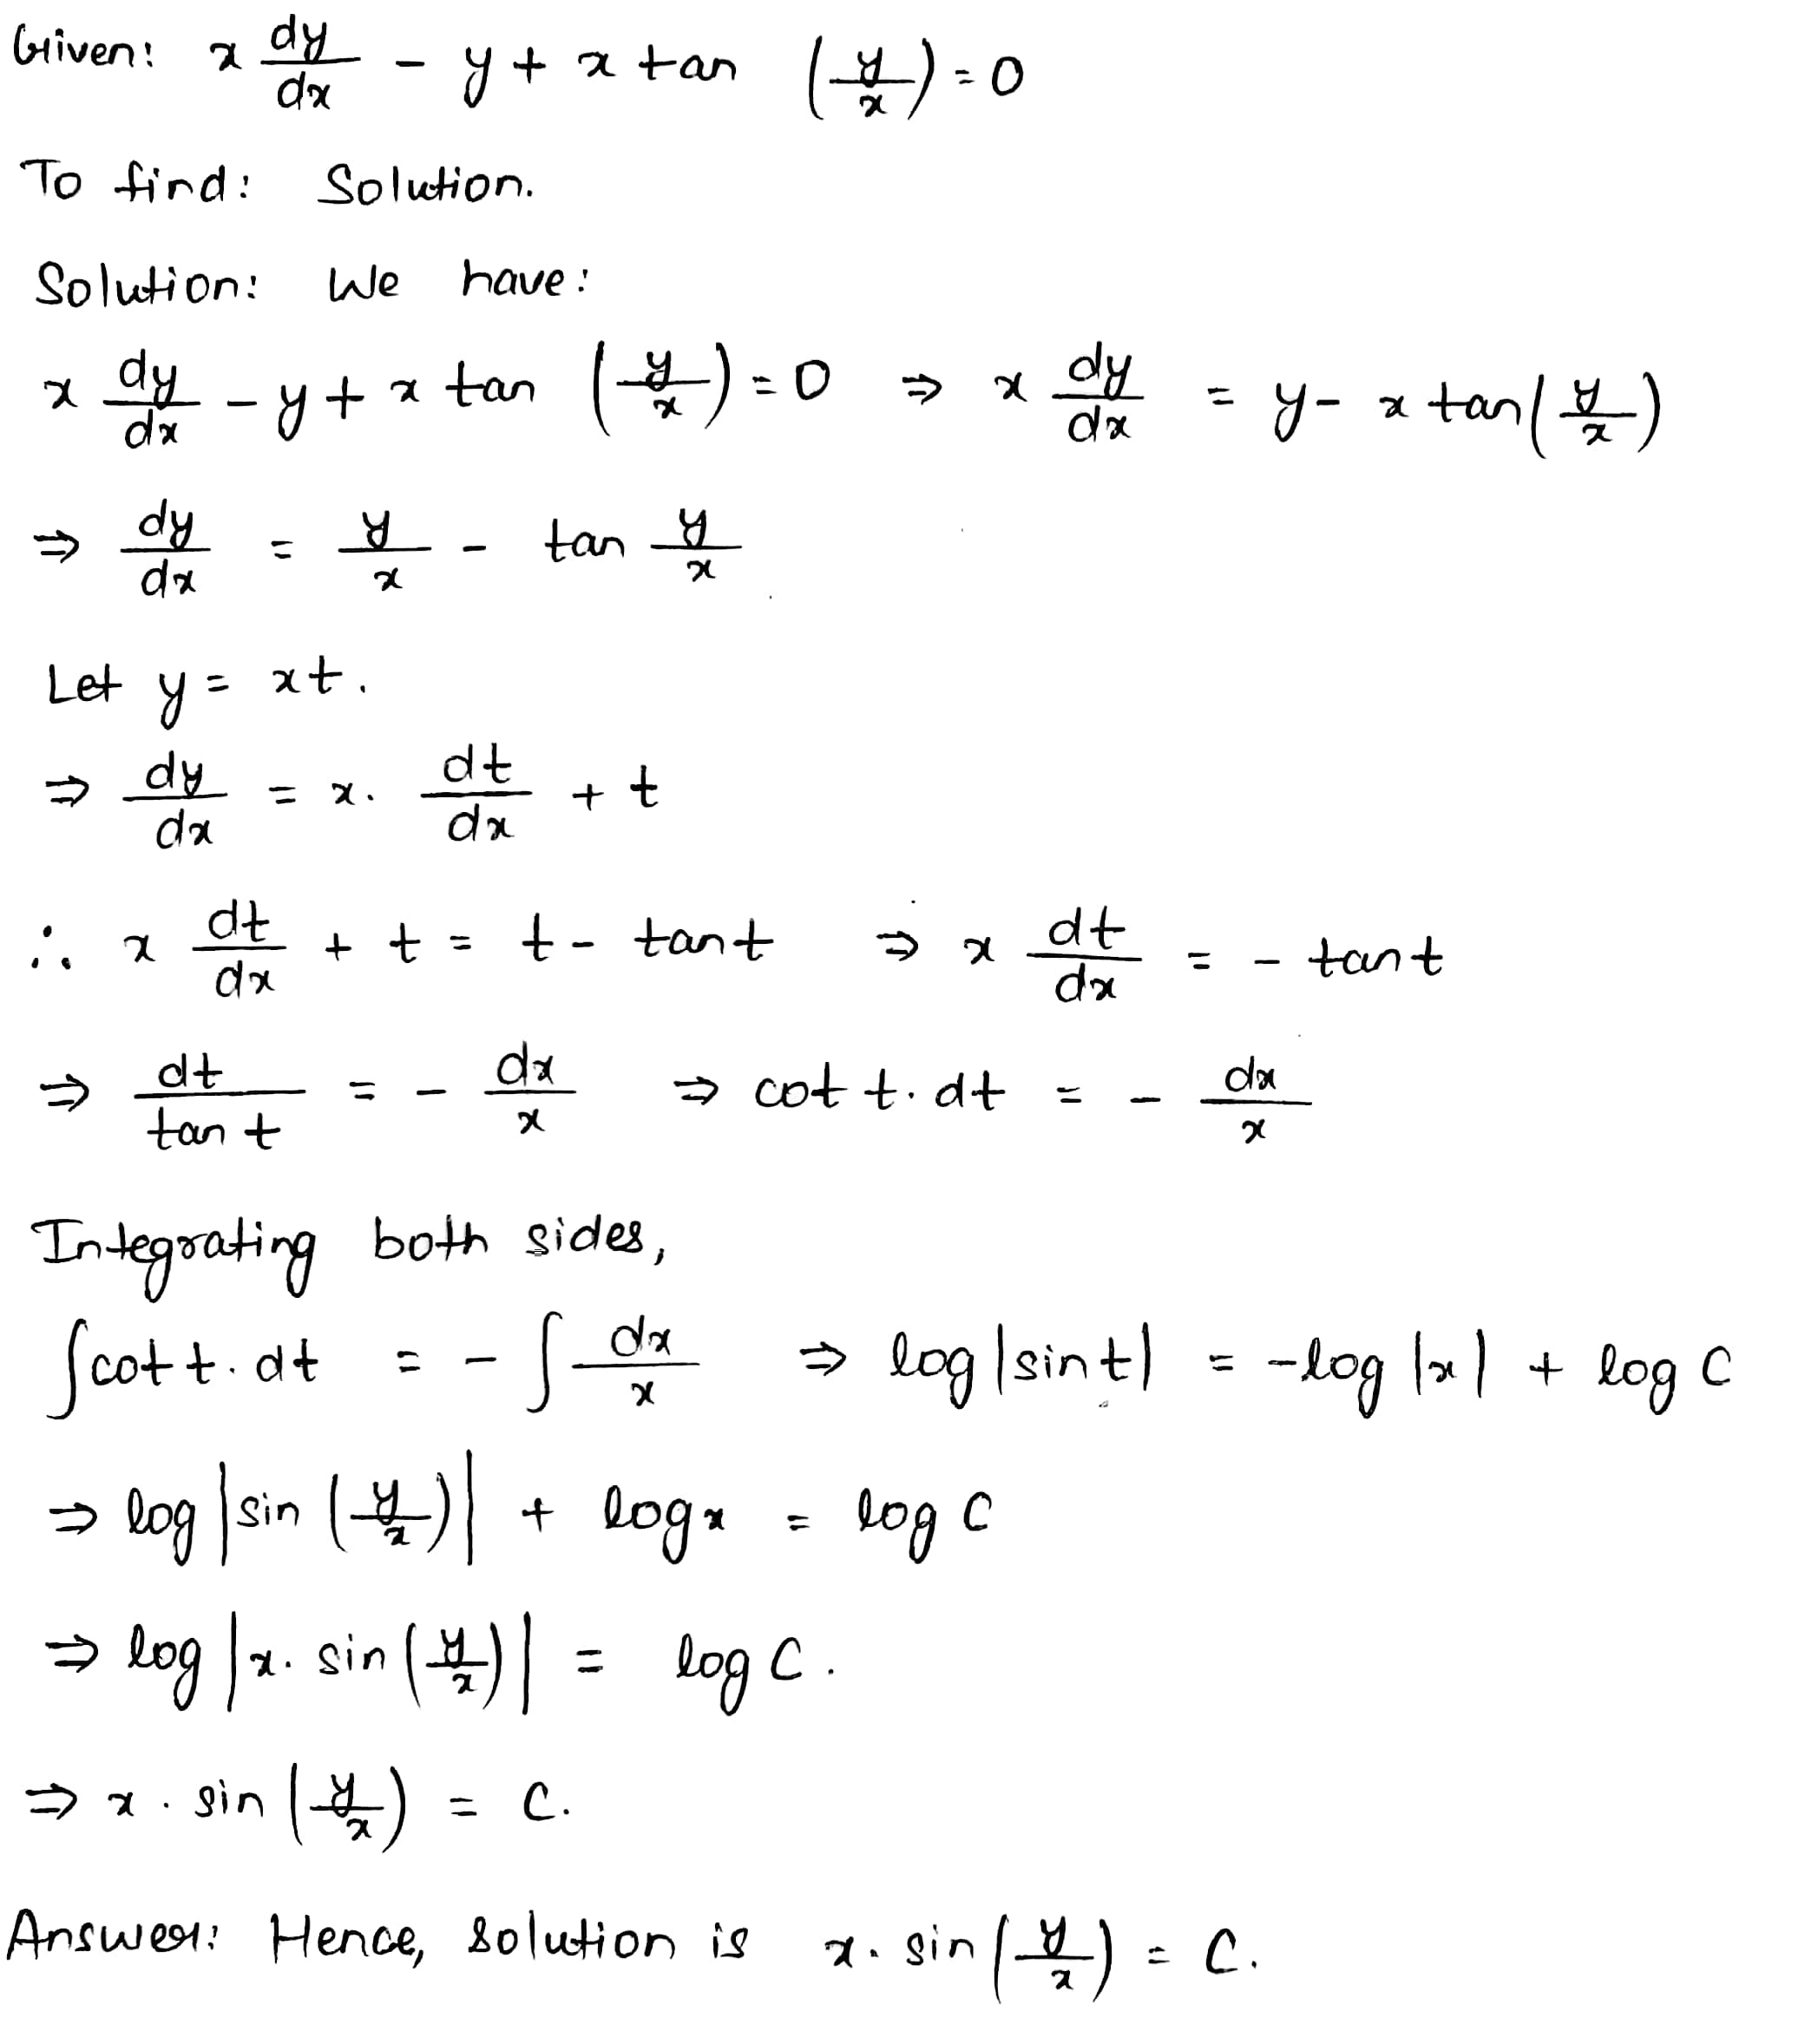 Given: x dy/dx - y + x tan (y/x) = 0
To find: Solution.
Solution: We have:
x dy/dx - y + x tan (y/x) = 0 ⇒ x dy/dx = y - x tan (y/x)
⇒ dy/dx = y/x - tan y/x
Let y = xt.
⇒ dy/dx = x. dt/dx + t
∴ x dt/dx + t = t - tant ⇒ x dt/dx = - tant
⇒ dt/tan t = - dx/x ⇒ cot t. dt = - dx/x
Integrating both sides,
∫cot t. dt = - ∫ dx/x ⇒ log |sin t| = -log |x| + log C
⇒ log |sin (y/x)| + log x = log C
⇒ log |x. sin (y/x)| = log C.
⇒ x . sin (y/x) = C.
Answer: Hence, solution is x. sin (y/x) = C.